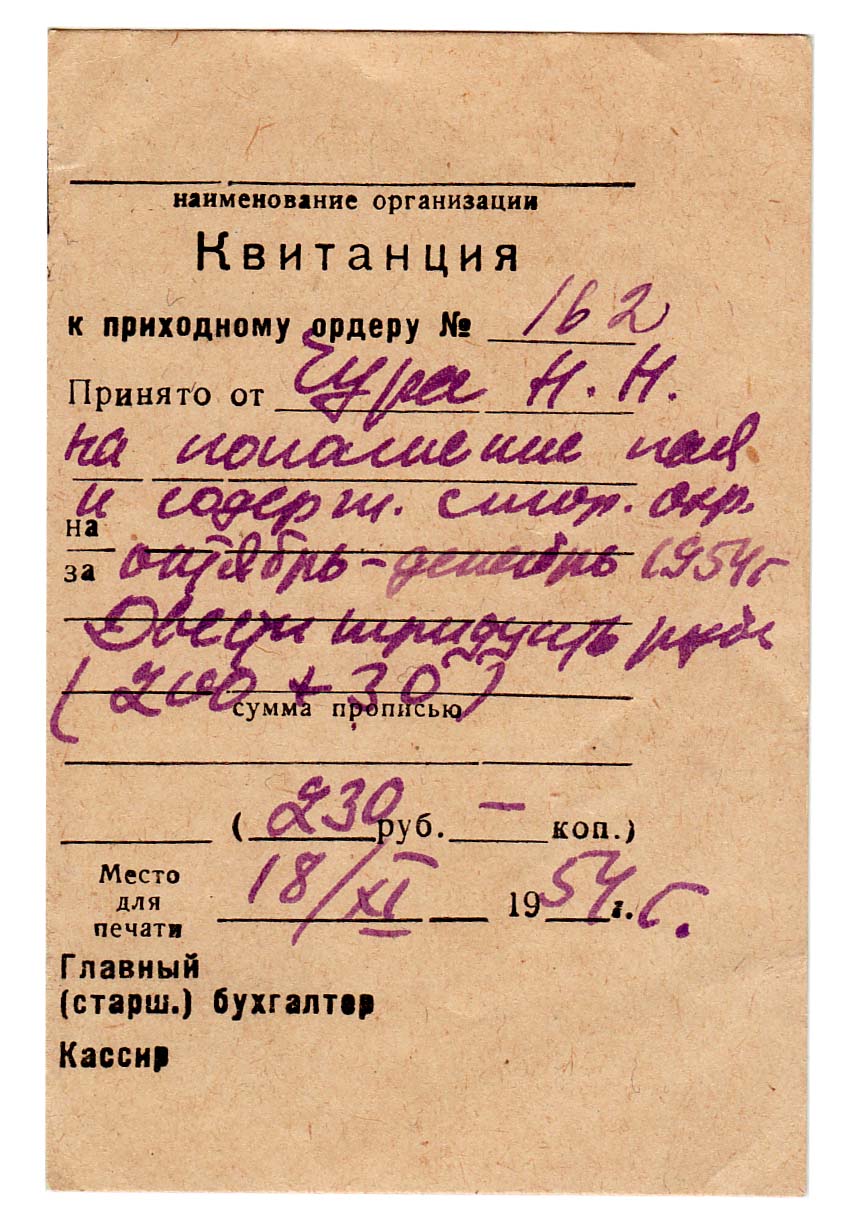 наименование организации
Квитанция
к приходному ордеру № 162
Принято от Чура Н. Н.
на погашение пая
и содерж. стор. охр.
на
за октябрь - декабрь 1954 г
Двести тридцать руб.
(200 + 30)
сумма прописью
(230 руб. — коп.)
Место
для
печати
18/XI 1954 г. г.
Главный
(старш.) бухгалтер
Кассир